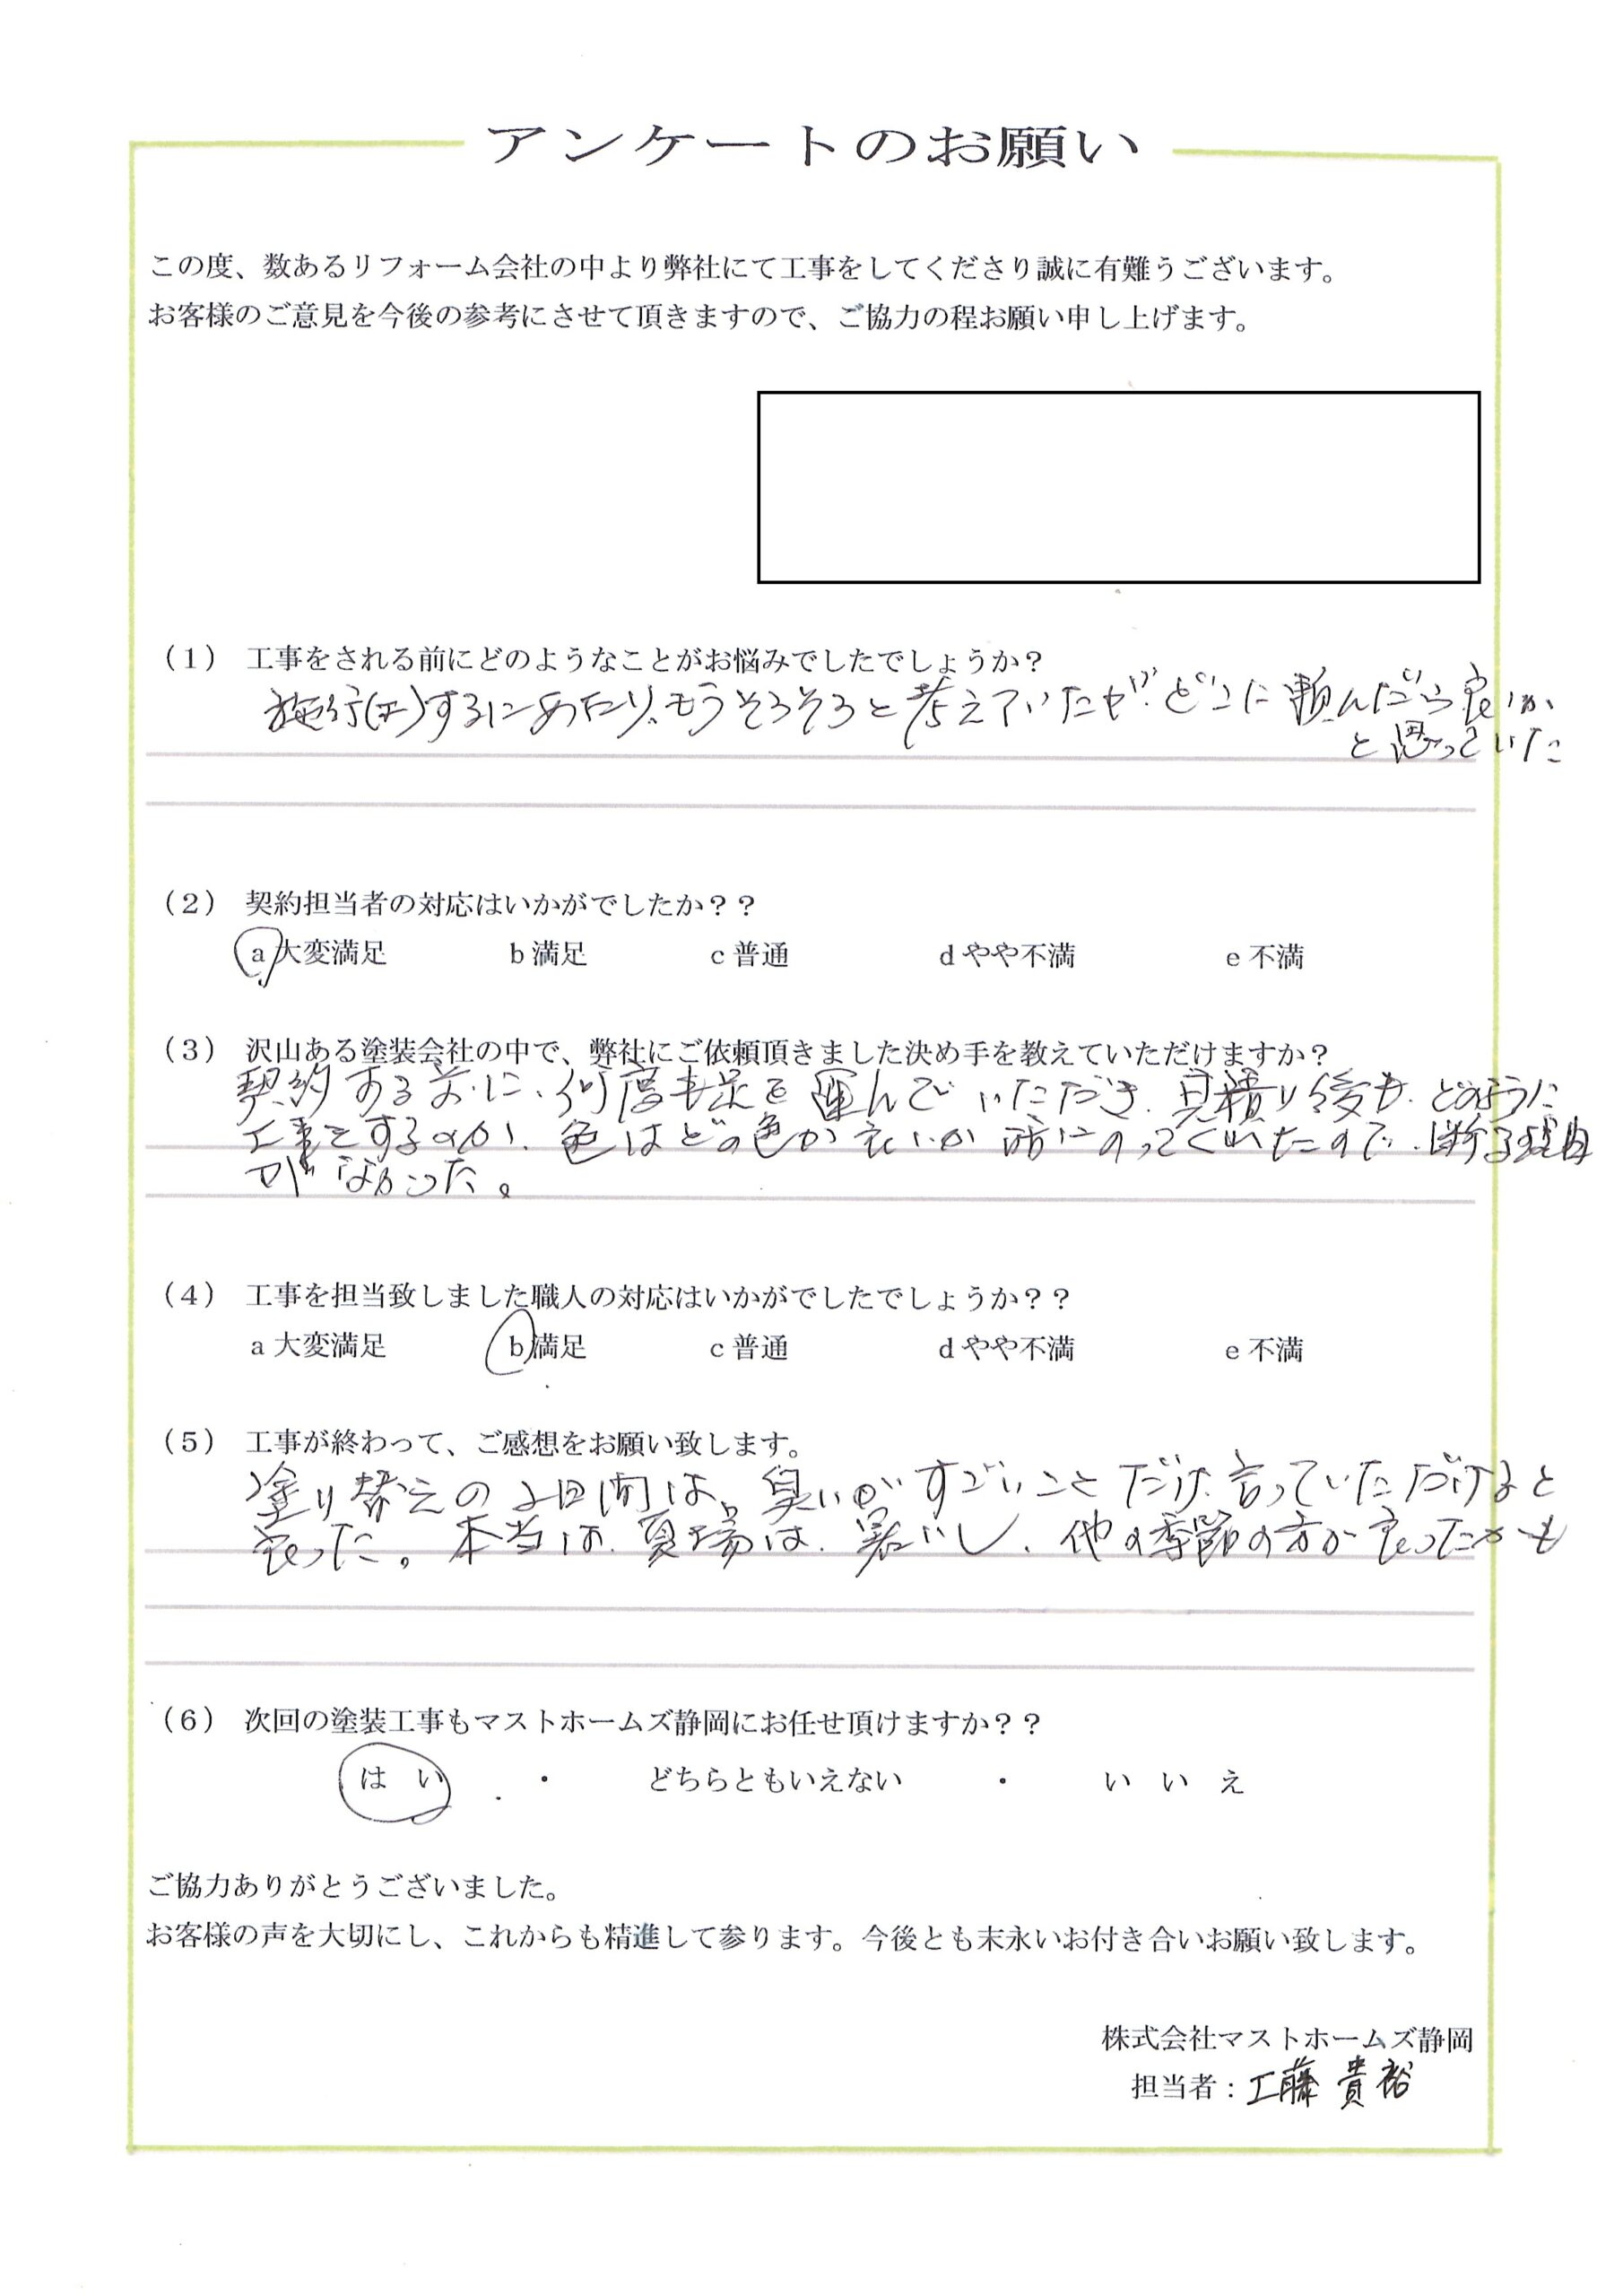 アンケートのお願い
この度、数あるリフォーム会社の中より弊社にて工事をしてくださり誠に有難うございます。
お客様のご意見を今後の参考にさせて頂きますので、ご協力の程お願い申し上げます。
（1） 工事をされる前にどのようなことがお悩みでしたでしょうか？
するにあたり、もうそろそろと考えていたが、どこに頼んだら良いか
と思っていた
（2） 契約担当者の対応はいかがでしたか？？
a 大変満足 b 満足 c 普通 d やや不満 e 不満
（3） 沢山ある塗装会社の中で、弊社にご依頼頂きました決め手を教えていただけますか？
契約する前に、何度も足を運んでいただき、見積り後も、どのように
工事をするのか、色はどの色が良いか にのってくれたので、断る理由
がなかった。
（4） 工事を担当致しました職人の対応はいかがでしたでしょうか？？
a 大変満足 b 満足 c 普通 d やや不満 e 不満
（5） 工事が終わって、ご感想をお願い致します。
塗り替えの2日間は、臭いがすごいことだけ、言っていただけると
良った。本当は、夏場は、暑いし、他の季節の方が良ったかも
（6） 次回の塗装工事もマストホームズ静岡にお任せ頂けますか？？
は い ・ どちらともいえない ・ い い え
ご協力ありがとうございました。
お客様の声を大切にし、これからも精進して参ります。今後とも末永いお付き合いお願い致します。
株式会社マストホームズ静岡
担当者：工藤 貴裕